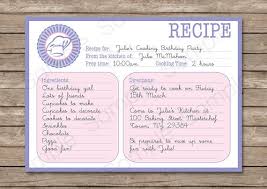 RECIPE
Recipe for: Julie's Cooking Birthday Party
From the kitchen of: Julie McMahon
Prep time: 10:00am Cooking Time: 2 hours
Ingredients:
One birthday girl
Lots of friends
Cupcakes
Cupcakes to decorate
Cookies to decorate
Sprinkles
Chocolate
Pizza
Good fun!
Directions:
Get ready to cook on Friday
15th March
Come to Julie's Kitchen
100 Baking Street, Mixertown
Toron, NY 2384
be prepared to have some
fun with Julie!